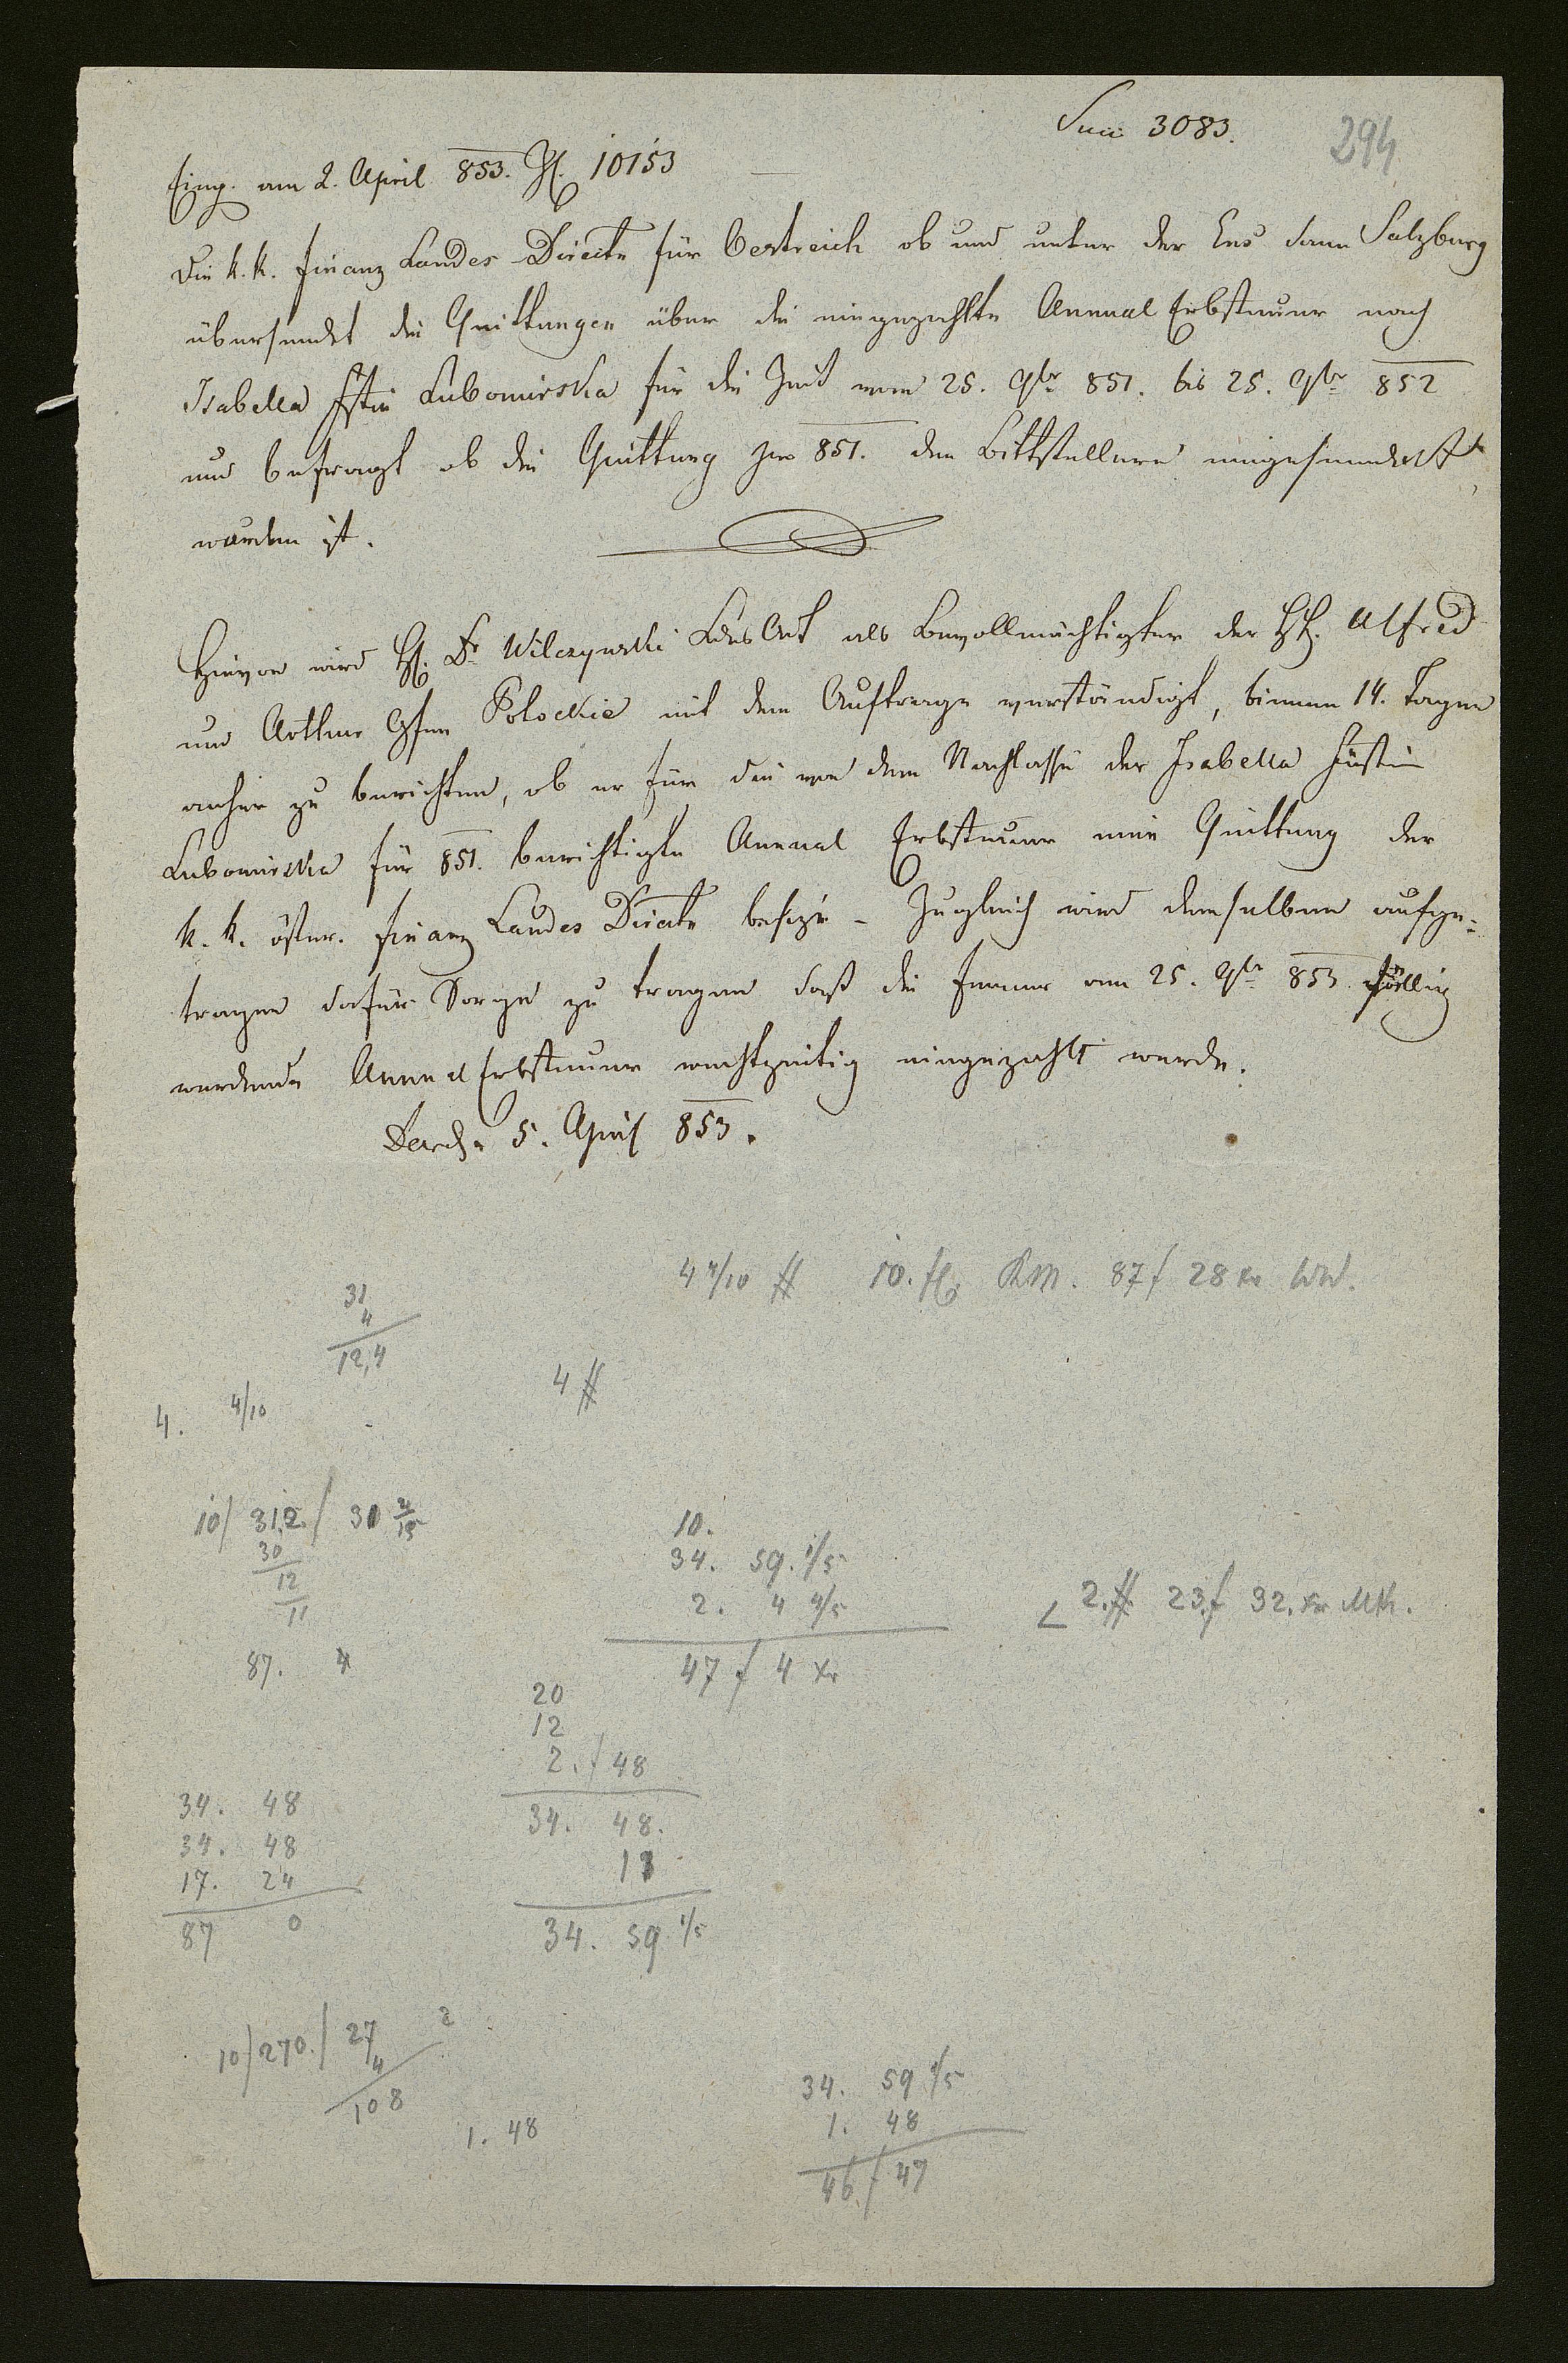 3083.
294
Eing. am 2. April 853. Zl. 10153
Die k. k. Finanz Landes Direcktn für Oestreich ob und unter der Ens dann Salzburg
übersendet die Quittungen über die eingezahlte Annual Erbsteuer nach
Isabella Fstin Lubomirska für die Zeit vom 25. 9br 851. bis 25. 9br 852
und befragt ob die Quittung pro 851. den Bittstellern eingesendet
worden ist.
Hievon wird H. Dr Wilczynski LdesAdt als Bevollmächtigter der HH. Alfred
und Arthur Gfen Potockie mit dem Auftrage verständigt, binnen 14. Tagen
anher zu berichten, ob er für die von dem Nachlasse der Isabella Fürstin
Lubomirska für 851. berichtigte Annual Erbsteuer eine Quittung der
k. k. öster. Finanz Landes Direcktn besize – Zugleich wird demselben aufge-
tragen dafür Sorge zu tragen daß die ferner am 25. 9br 853 fällig
werdende Annual Erbsteuer rechtzeitig eingezahlt werde.
5. April 853.
4 4/10 # 10. fl. KM. 87 f 28 xr WW.
31
4
12,4
4 #
4. 4/10
10/ 312 / 31 2/15
30
12
11
87. 4
10.
34. 59. 1/5
2. 4 4/5
47 f 4 xr
2. # 23 f 32. xr MK.
20
12
2. / 48
34. 48.
11
34. 59 1/5
34. 48
34. 48
17. 24
87 0
10/270./ 27 2
4
108
1. 48
34. 59 1/5
1. 48
46 f 47